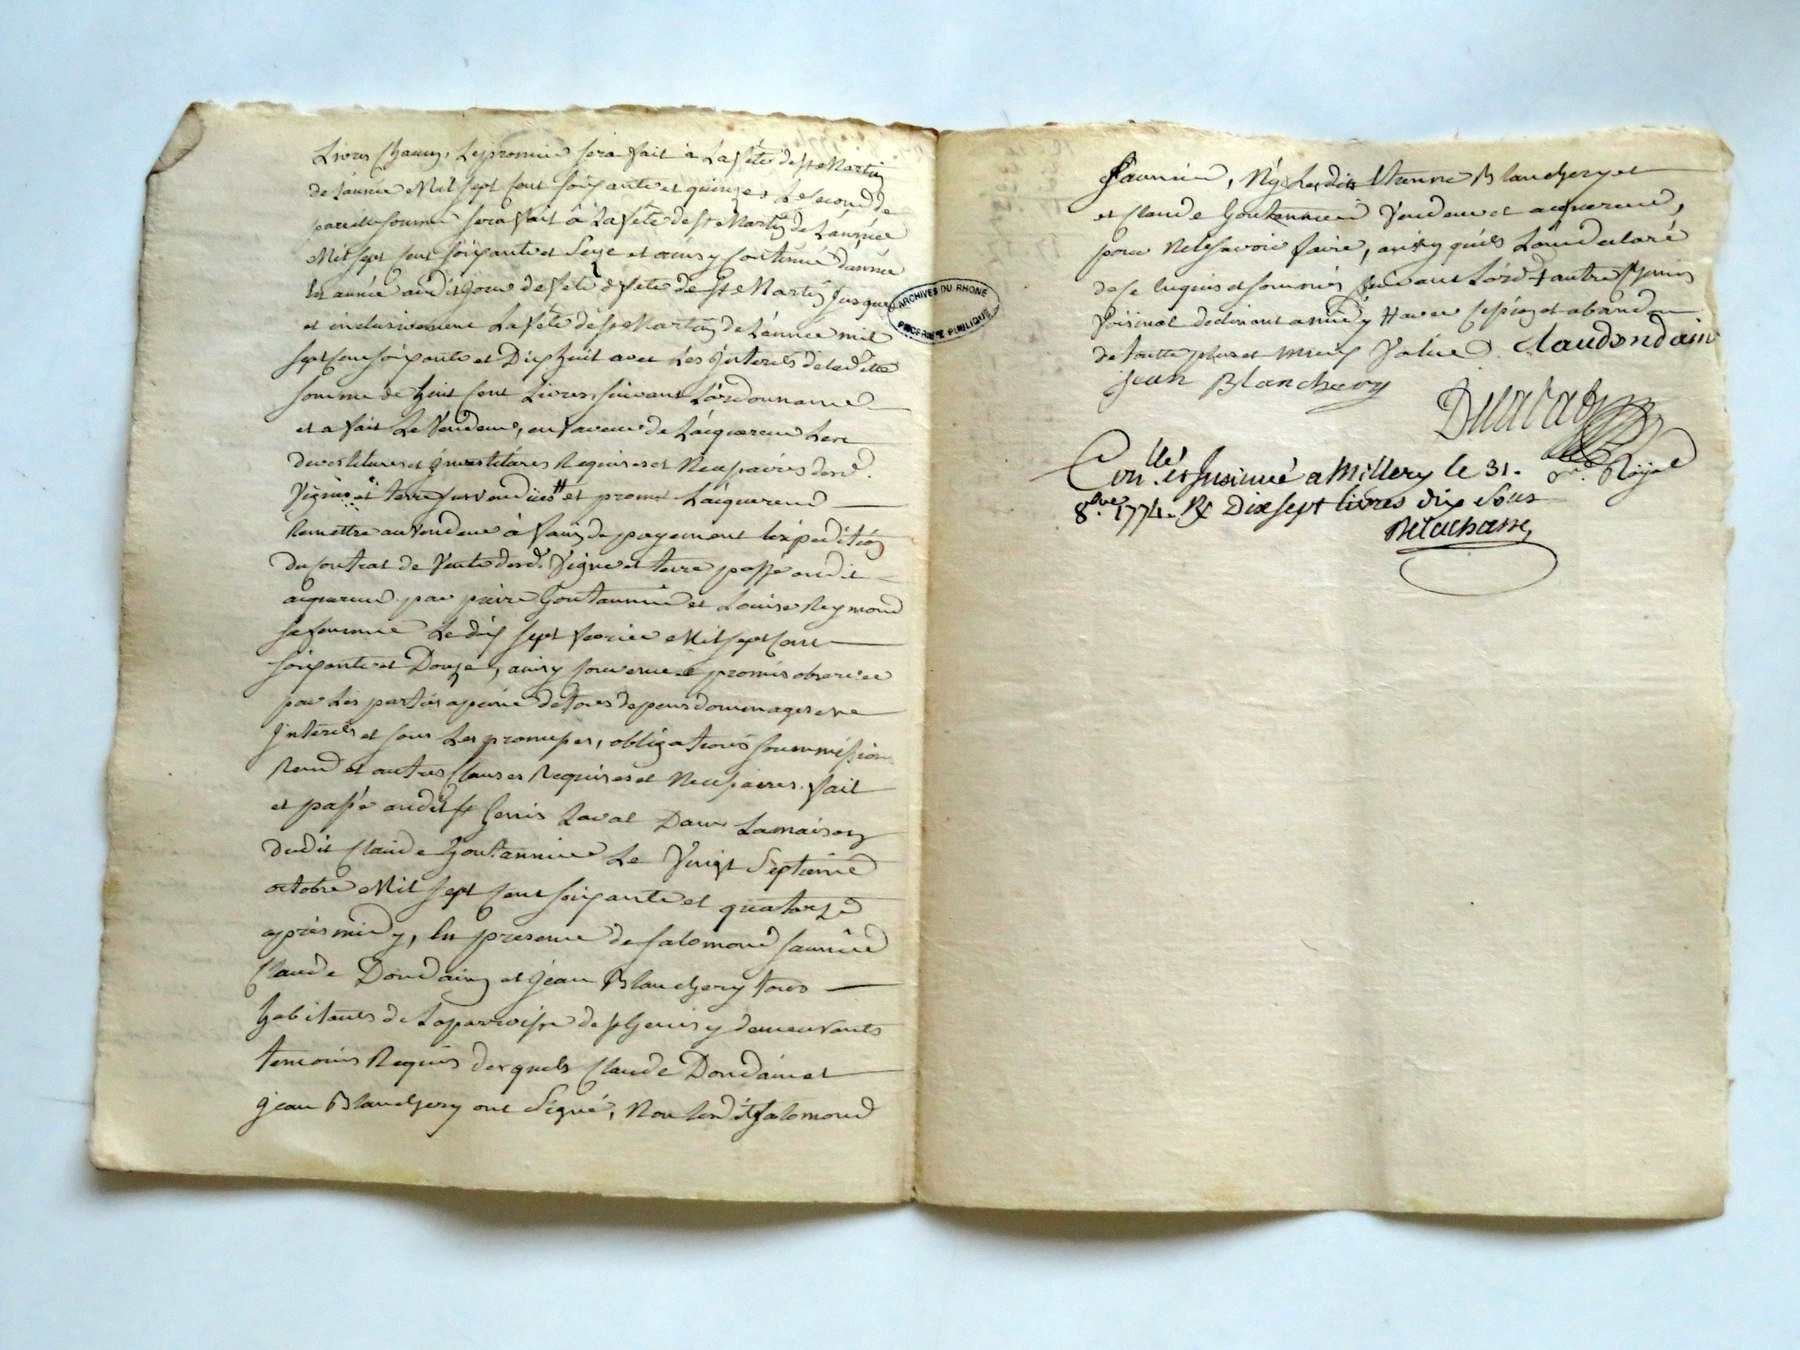 Livres Chacun, Le premier sera fait à La fête de st Martin
de L'année Mil sept cent soixante et quinze, Le second de
pareille somme sera fait à La fête de st Martin de L'année
Mil sept cent soixante et Seize et ainsy continué d'année
En année audit jour de fête de st Martin Jusques
et inclusivement La fête de st Martin de L'année mil
sept cent soixante et Dix huit avec Les jnterets de laditte
somme de huit Cent Livres suivant L'ordonnance
et a fait Le Vendeur, en faveur de L'acquereur Les
devestitures et jnvestitures Requises et Necessaires desd.
Vignes et terre sus vendües # et promet L'acquereur
Remettre au vendeur à de payement L'expedition
du contrat de Vente desd. Vigne et terre passé audit
acquereur par pierre Goutannier et Louise Reymond
sa femme Le dix sept fevrier Mil sept Cent
soixante et Douze, ainsy convenu et promis observer
par Les parties a peine de tous depens dommages et
jnterets et sous Les promesses, obligations soummissions
Renon et autres Clauses Requises et Necessaires. fait
et passé audit st Genis Laval Dans La maison
dudit Claude Goutannier Le Vingt Septieme
octobre Mil sept cent soixante et quatorze
après midy, En presence de Salomond Saunier
Claude Dondain et jean Blanchery tous
habitants de La parroisse de st Genis y demeurants
temoins Requis desquels Claude Dondain et
jean Blanchery ont Signé, Non Ledit Salomond
Saunier, Ny Lesdits Etienne Blanchery et
et Claude Goutannier Vendeur et acquereur,
pour Ne Le savoir faire, ainsy qu'ils L'ont declaré
de ce Enquis et sommés suivant L'ord. # autre chemin
Voisinal declinant a midy # avec cession et abandon
de toutte plus et mieux Value. Claude Dondain
jean Blanchery
No.re Royal
Con.llé et Insinué a Millery le 31.
8.bre 1774. R. Dix sept livres dix sous
Delachasse
ARCHIVES DU RHONE
PROPRIETE PUBLIQUE